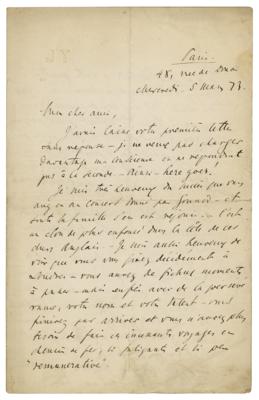 Paris
48, rue de Douai
Mercredi, 5 Mars 73.
Mon cher ami,
J'avais laissé votre première lettre
sans réponse – je ne veux pas charger
davantage ma conscience en ne répondant
pas à la seconde. – Hence – here goes!
Je suis très heureux du succès que vous
avez eu au concert donné par Gounod – et
toute la famille s'en est réjouie. – C'est
un clou de plus enfoncé dans la tête de ces
chers Anglais. – Je suis aussi heureux de
voir que vous vous fixez décidément à
Londres – vous aurez de fichus moments
à passer – mais enfin avec de la persévé-
rance, votre nom et votre talent – vous
finirez par arriver et vous n'aurez plus
besoin de faire ces incessants voyages en
chemin de fer, si fatigants et si peu
"remunerative".